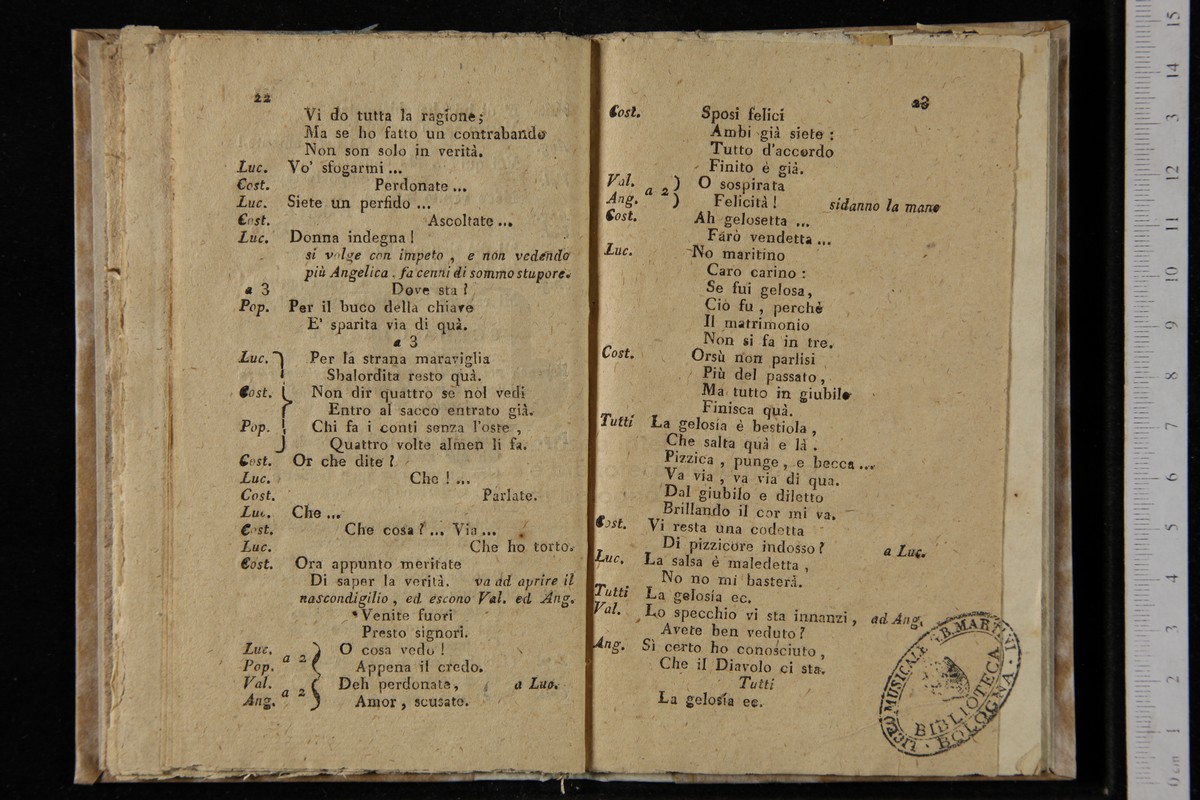 22
Vi do tutta la ragione;
Ma se ho fatto un contrabando
Non son solo in verità.
Luc. Vo' sfogarmi ...
Cost. Perdonate ...
Luc. Siete un perfido ...
Cost. Ascoltate ...
Luc. Donna indegna !
si volge con impeto , e non vedendo
più Angelica . fa cenni di sommo stupore.
a 3 Dove sta ?
Pop. Per il buco della chiave
E' sparita via di quà.
a 3
Luc. Per la strana maraviglia
Sbalordita resto quà.
Cost. Non dir quattro se nol vedi
Entro al sacco entrato già.
Pop. Chi fa i conti senza l'oste ,
Quattro volte almen li fa.
Cost. Or che dite ?
Luc. Che ! ...
Cost. Parlate.
Luc. Che ...
Cost. Che cosa ? ... Via ...
Luc. Che ho torto.
Cost. Ora appunto meritate
Di saper la verità. va ad aprire il
nascondigilio , ed escono Val. ed Ang.
Venite fuori
Presto signori.
Luc. a 2 ) O cosa vedo !
Pop. ( Appena il credo.
Val. a 2 ( Deh perdonate, a Luc.
Ang. ) Amor , scusate.
23
Cost. Sposi felici
Ambi già siete :
Tutto d'accordo
Finito è già.
Val. a 2 ) O sospirata
Ang. ) Felicità ! sidanno la mano
Cost. Ah gelosetta ...
Farò vendetta ...
Luc. No maritino
Caro carino :
Se fui gelosa,
Ciò fu , perchè
Il matrimonio
Non si fa in tre.
Cost. Orsù non parlisi
Più del passato,
Ma tutto in giubilo
Finisca quà.
Tutti La gelosia è bestiola ,
Che salta quà e là .
Pizzica , punge, e becca ...
Va via , va via di qua.
Dal giubilo e diletto
Brillando il cor mi va.
Cost. Vi resta una codetta
Di pizzicore indosso ? a Luc.
Luc. La salsa è maledetta ,
No no mi basterà.
Tutti La gelosia ec.
Val. Lo specchio vi sta innanzi , ad Ang.
Avete ben veduto ?
Ang. Sì certo ho conosciuto ,
Che il Diavolo ci sta.
Tutti
La gelosía ec.
LICEO MUSICALE G.B. MARTINI
BIBLIOTECA
BOLOGNA
0 cm 1 2 3 4 5 6 7 8 9 10 11 12 3 14 15